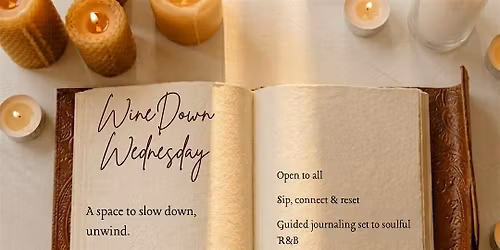 Wine Down
Wednesday
A space to slow down,
unwind.
Open to all
Sip, connect & reset
Guided journaling set to soulful
R&B